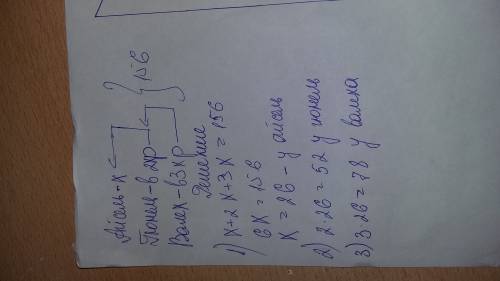 Айсель - х
Гюнель - в 2хр } 156
Валех - в 3хр
Решение
1) х + 2х + 3х = 156
6х = 156
х = 26 - у айсель
2) 2·26 = 52 у гюнель
3) 3·26 = 78 у валеха